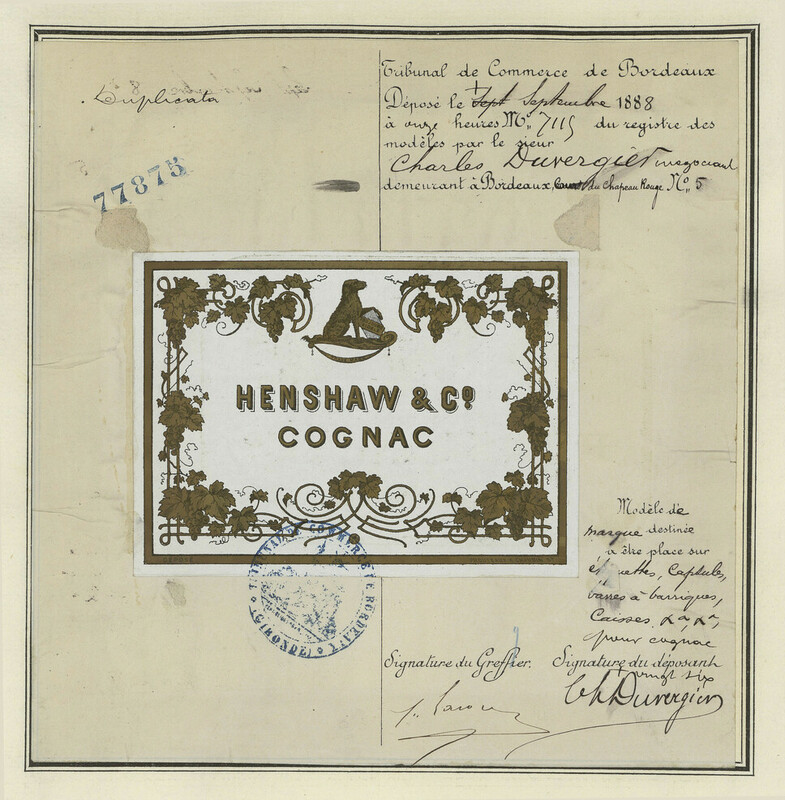 Duplicata
77875
Tribunal de Commerce de Bordeaux
Déposé le Sept Septembre 1888
à onze heures No. 7115 du registre des
modèles par le sieur
Charles Duvergier negociant
demeurant à Bordeaux, Cours du Chapeau Rouge No. 5
HENSHAW & Co
COGNAC
TRIBUNAL DE COMMERCE DE BORDEAUX
(GIRONDE)
Modèle de
marque destinée
à être place sur
étiquettes, Capsules,
barres à barriques,
Caisses &a, &a,
pour cognac
Signature du Greffier.
Signature du déposant
+ vingt six
Ch Duvergier